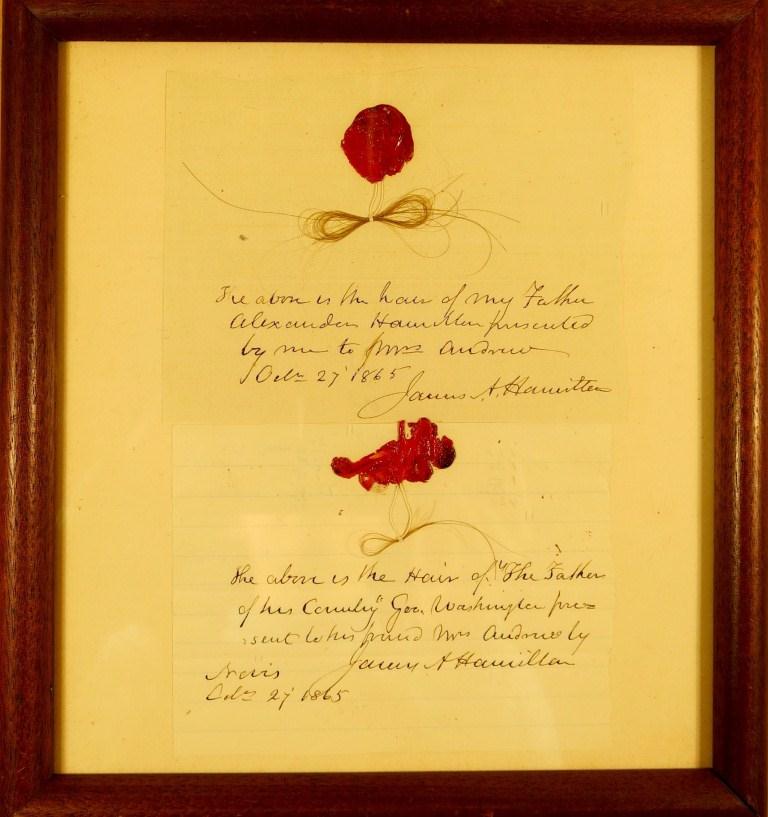 The above is the hair of my Father
Alexander Hamilton presented
by me to Mrs Andrew
Octr 27' 1865
James A. Hamilton
The above is the Hair of "The Father
of his Country" Geo. Washington pre=
sent to his friend Mrs Andrew by
James A Hamilton
Nevis
Octr 27' 1865